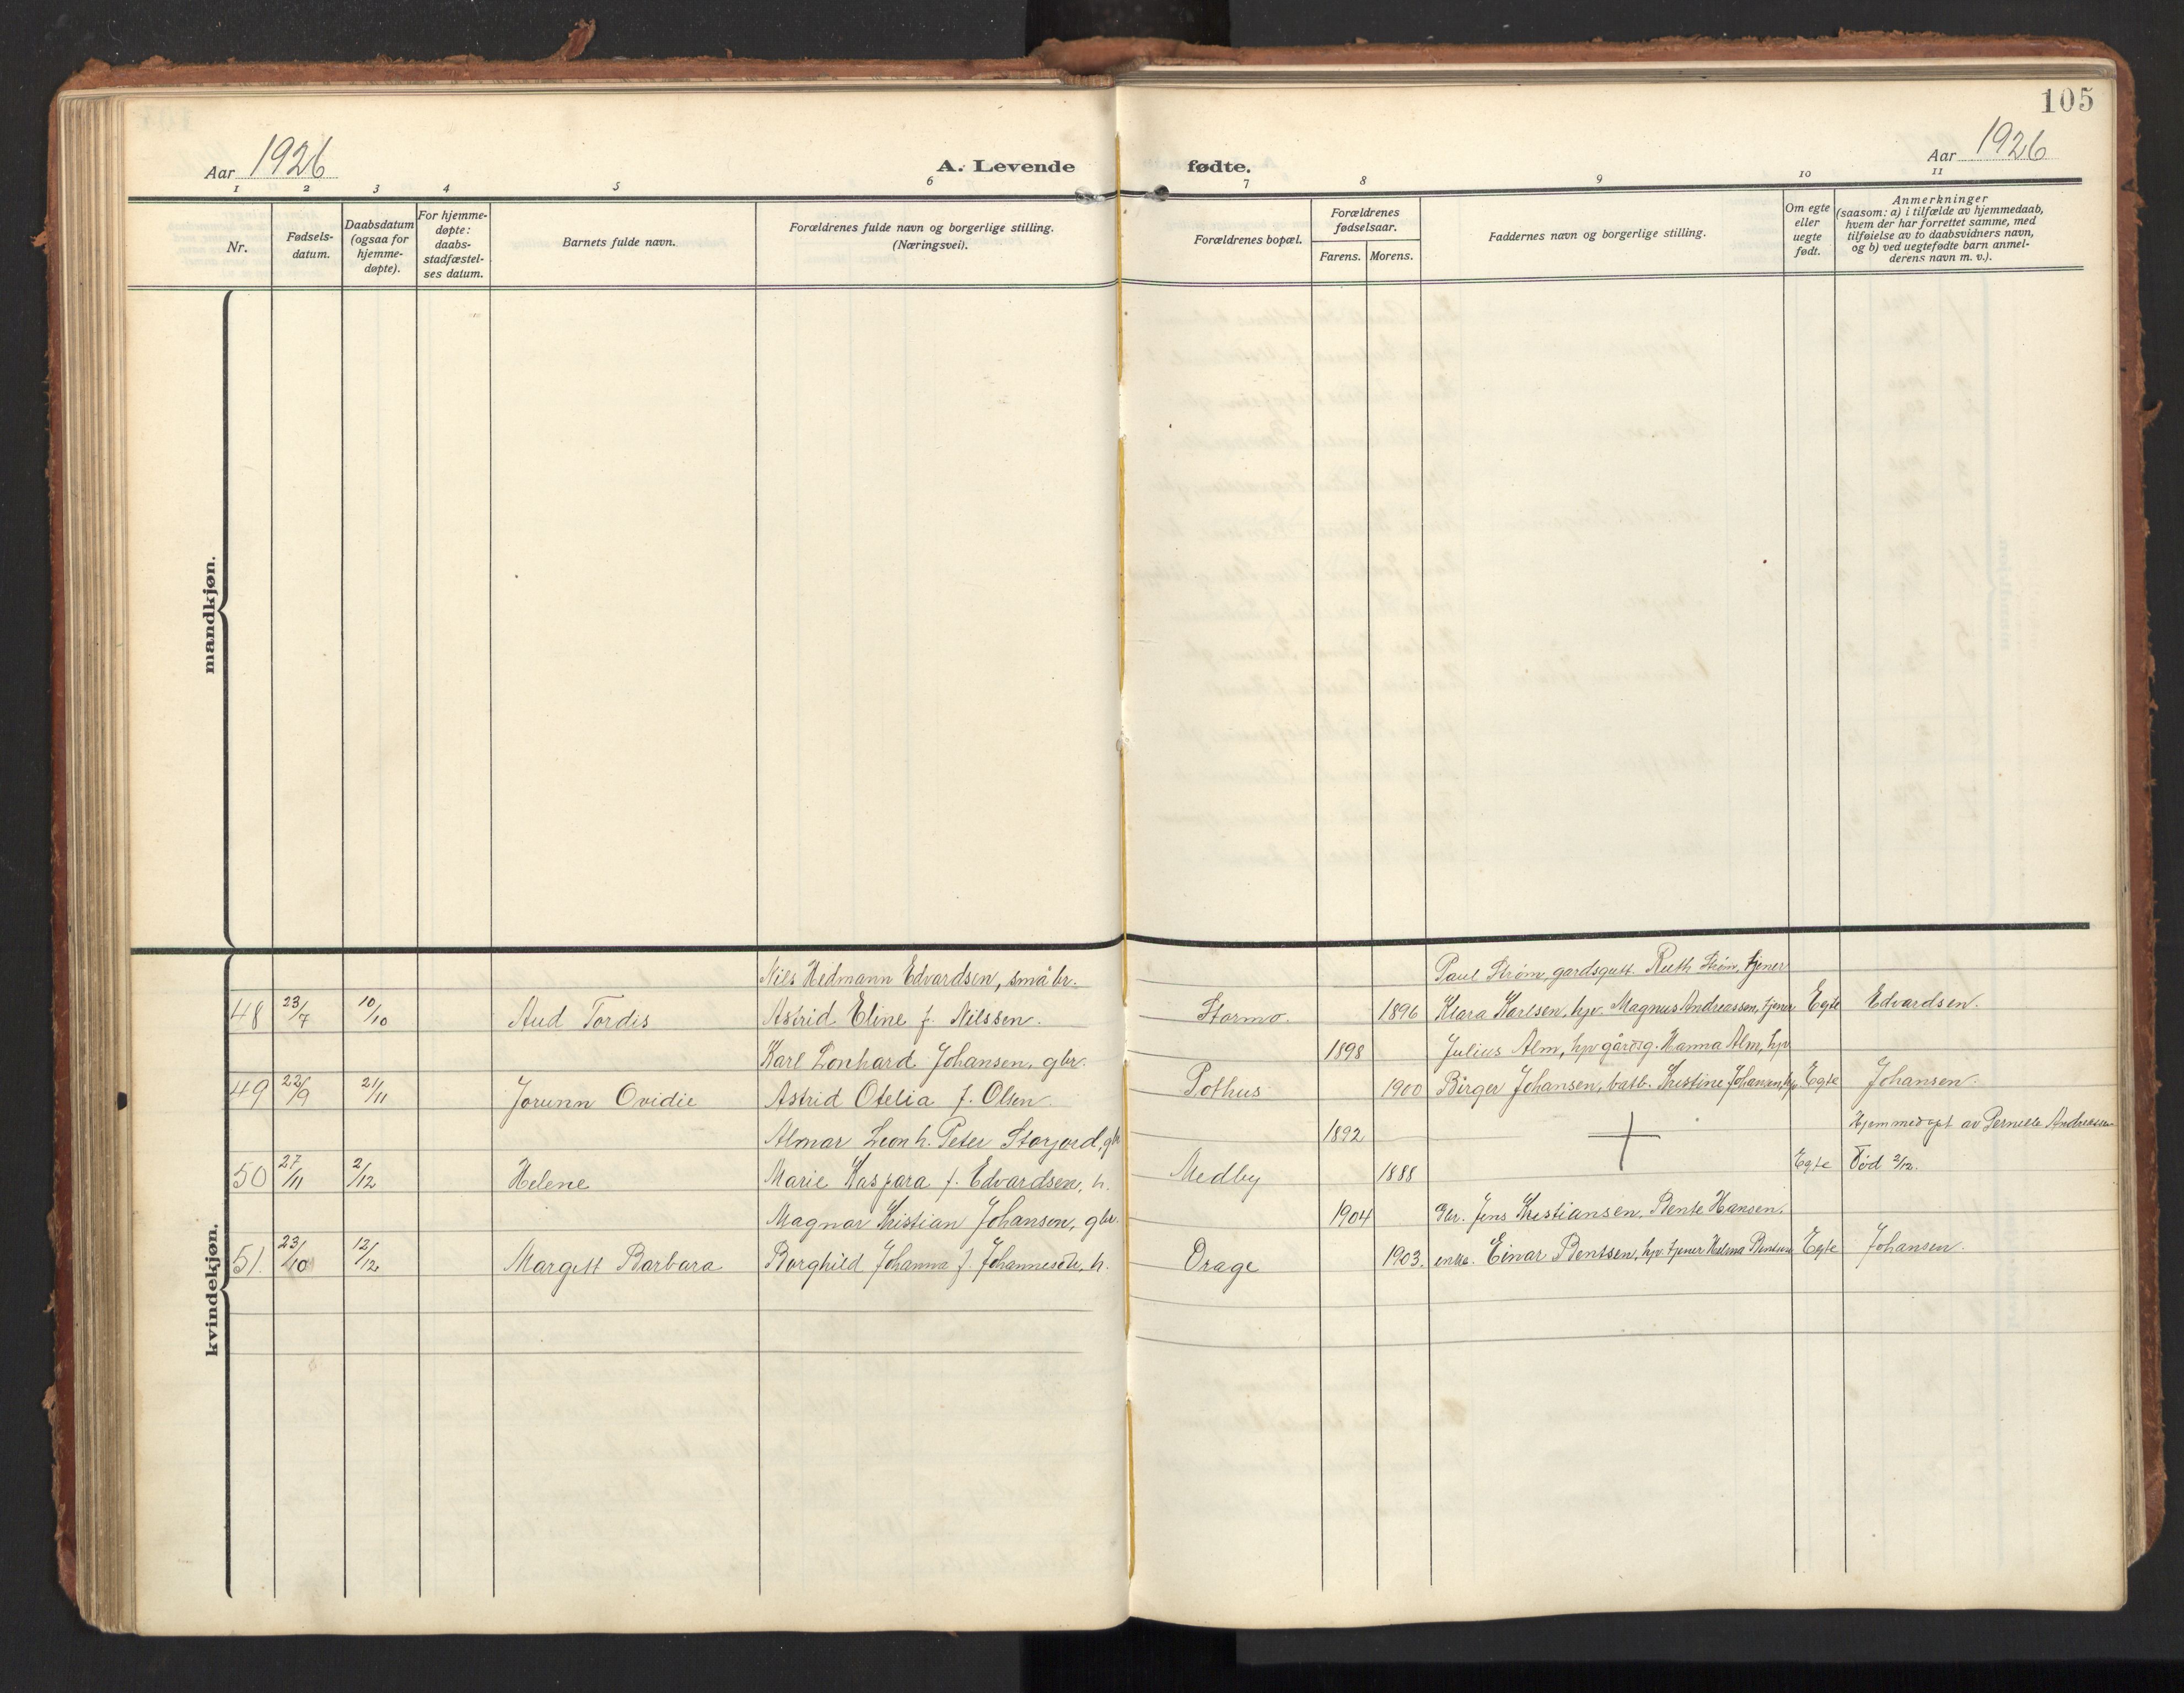 105
Aar 1926
A. Levende fødte.
Aar 1926
1 2 3 4 5 6 7 8 9 10 11
Nr.
Fødsels-
datum.
Daabsdatum
(ogsaa for
hjemme-
døpte).
For hjemme-
døpte:
daabs-
stadfæstel-
ses datum.
Barnets fulde navn.
Forældrenes fulde navn og borgerlige stilling.
(Næringsvei).
Forældrenes bopæl.
Forældrenes
fødselsaar.
Farens. Morens.
Faddernes navn og borgerlige stilling.
Om egte
eller
uegte
født.
Anmerkninger
(saasom: a) i tilfælde av hjemmedaab,
hvem der har forrettet samme, med
tilføielse av to daabsvidners navn,
og b) ved uegtefødte barn anmel-
derens navn m. v.).
mandkjøn.
kvindekjøn.
Nils Hedmann Edvardsen, småbr. Paul Strøm, gardsgutt. Ruth Strøm, tjener
48 23/7 10/10 Aud Tordis Astrid Eline f. Nilssen. Stormo. 1896 Klara Karlsen, hjv. Magnus Andreassen, tjener Egte Edvardsen.
Karl Lonhard Johansen, gbr. 1898 Julius Alm, hjv gårdsg. Hanna Alm, hjv
49 22/9 21/11 Jorunn Ovidie Astrid Otelia f. Olsen. Pothus 1900 Birger Johansen, Kristine Johansen, hjv. Egte Johansen.
Almar Leonh. Peter Storjord, gbr 1892 Hjemmedøpt av Pernelle Andreassen
50 27/11 2/12 Helene Marie Kaspara f. Edvardsen, h. Medby 1888 Egte Død 2/12.
Magnar Kristian Johansen, gbr. 1904 Gbr. Jens Kristiansen, Bente Hansen,
51. 23/10 12/12 Margitt Barbara Borghild Johanna f. Johannesdtr, h. Drage 1903. enke. Einar Bentsen, hjv. tjener Helma Bentsen Egte Johansen.